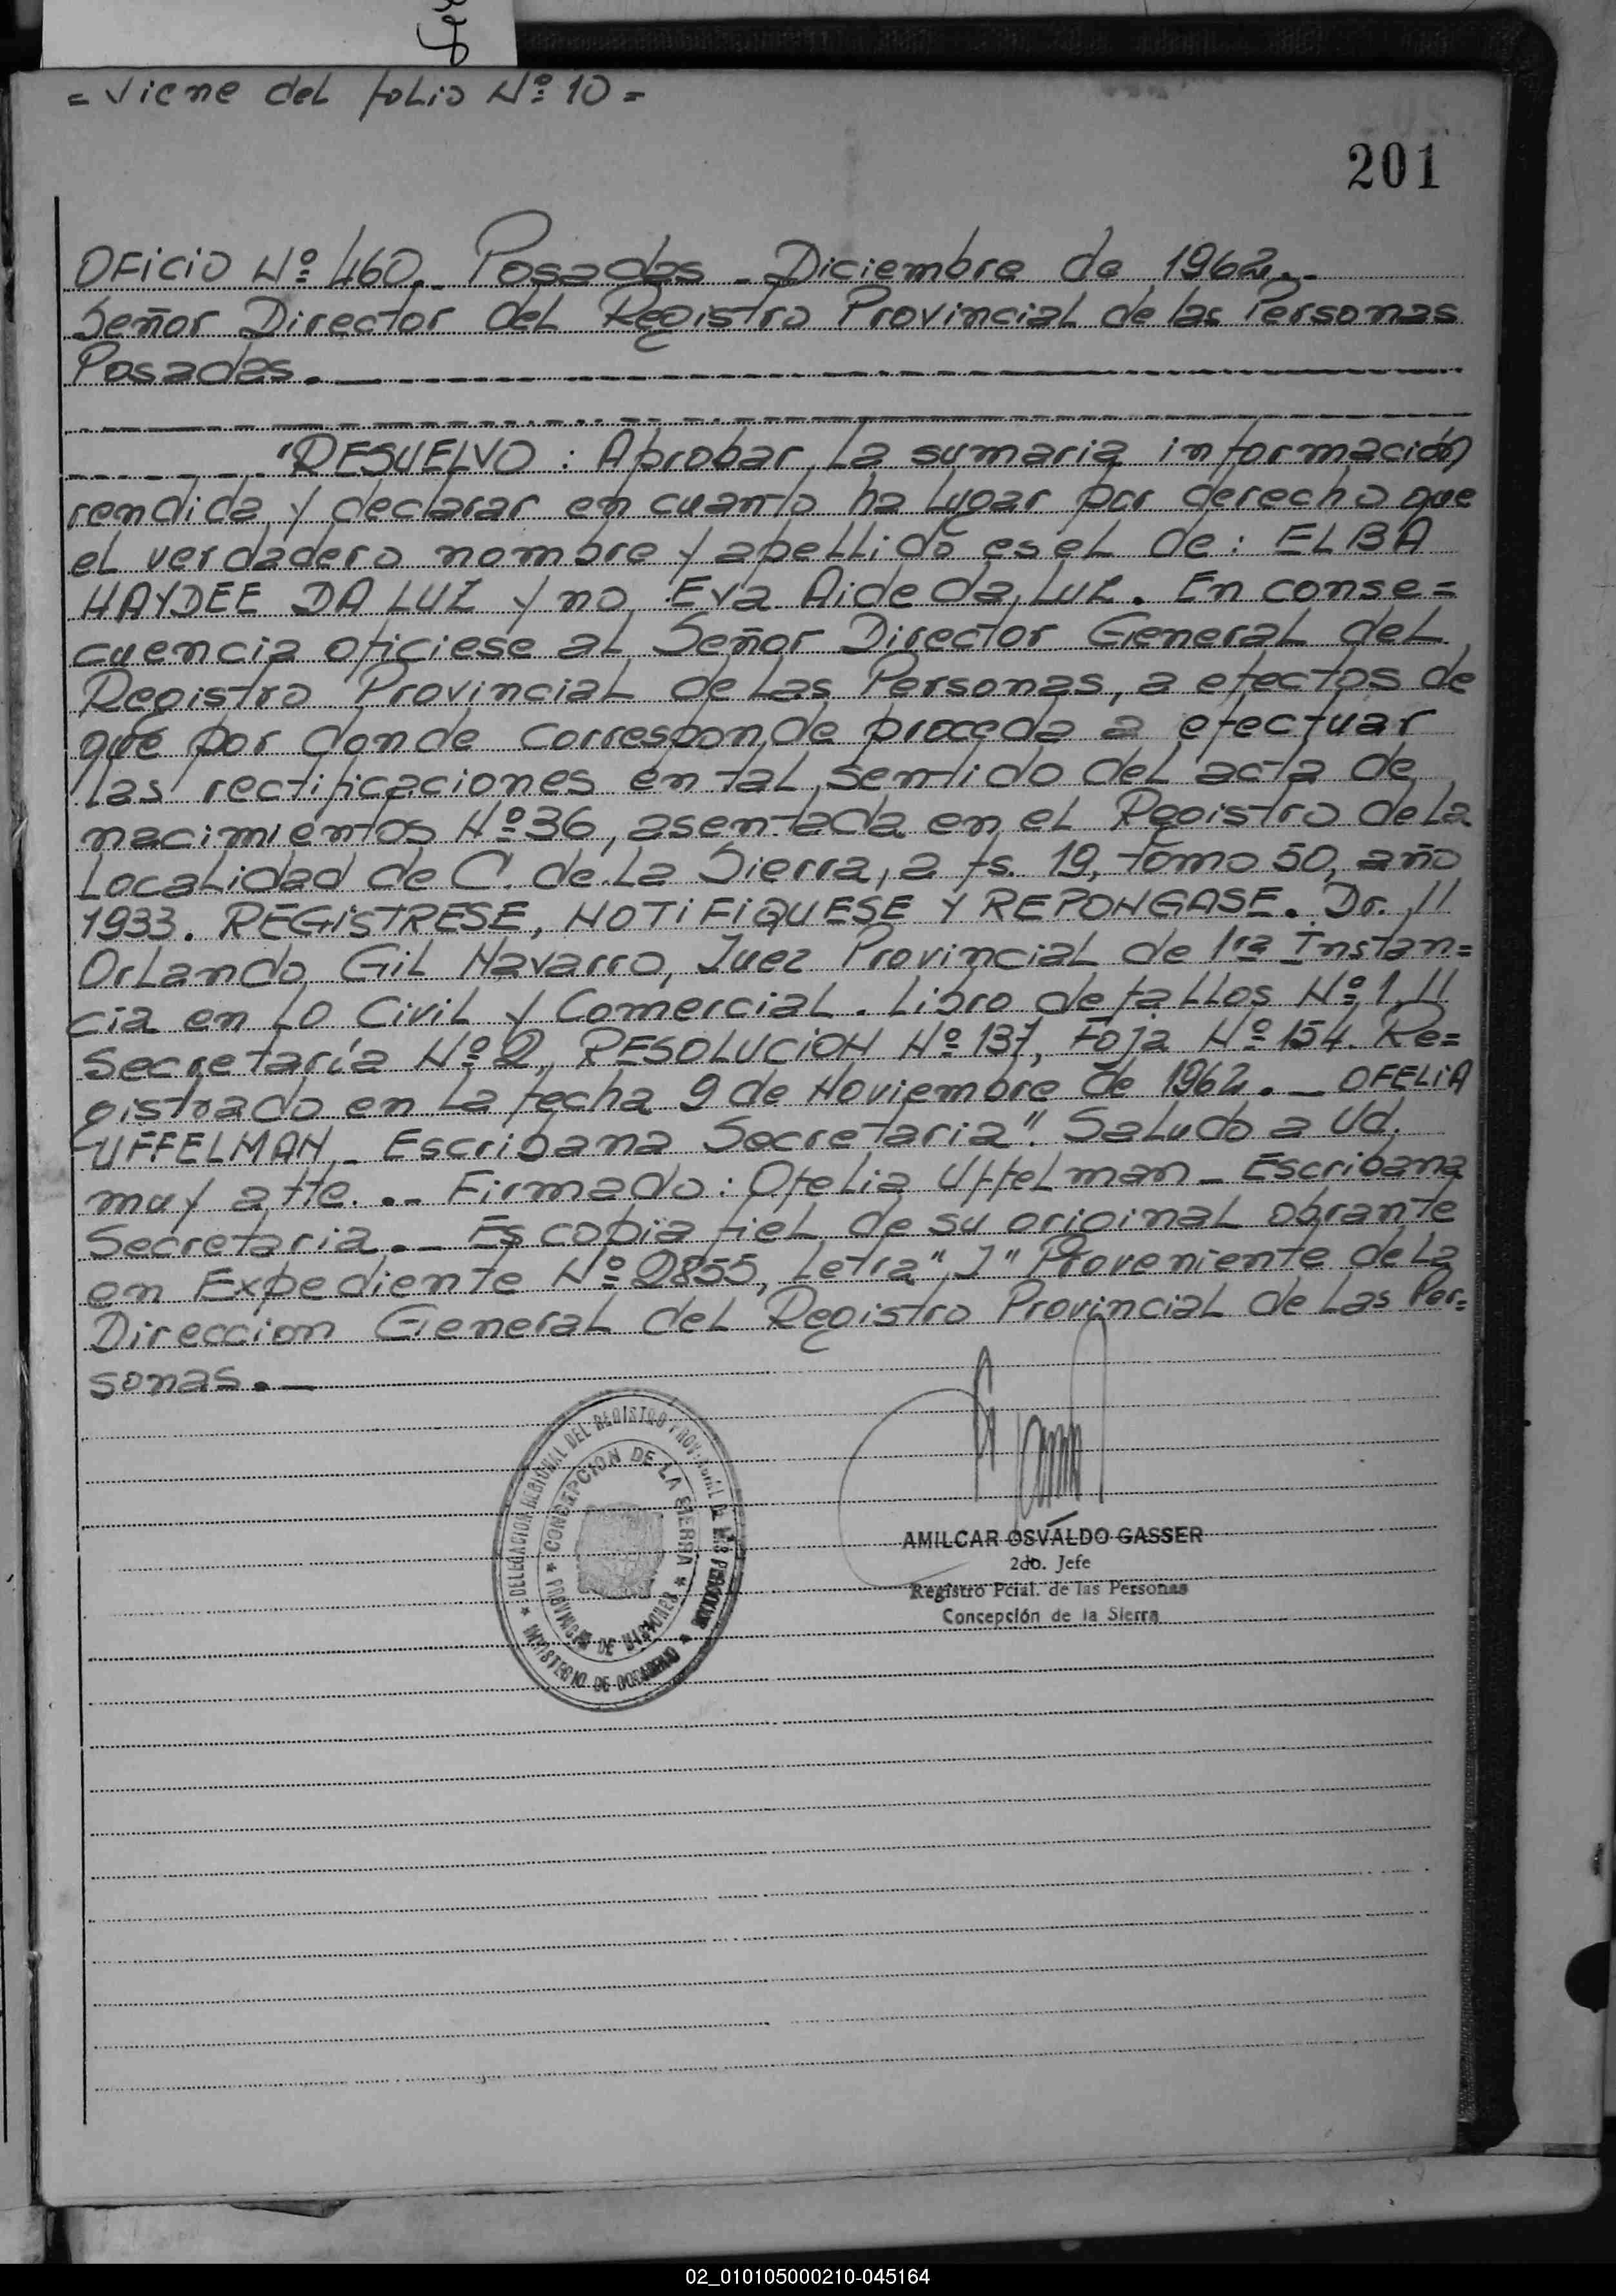 = Viene del folio Nº 10 =
201
Oficio Nº 460._ Posadas _ Diciembre de 1962._
Señor Director del Registro Provincial de las Personas
Posadas.
"RESUELVO : Aprobar la sumaria información
rendida y declarar en cuanto ha lugar por derecho que
el verdadero nombre y apellido es el de : ELBA
HAYDEE DA LUZ y no Eva Aide da Luz. En conse=
cuencia oficiese al Señor Director General del
Registro Provincial de las Personas, a efectos de
que por donde corresponde proceda a efectuar
las rectificaciones en tal sentido del acta de
nacimientos Nº 36, asentada en el Registro de la
Localidad de C. de la Sierra, a fs. 19, tomo 50, año
1933. REGISTRESE, NOTIFIQUESE Y REPONGASE. Dr. //
Orlando Gil Navarro, Juez Provincial de 1ra Instan=
cia en lo Civil y Comercial. Libro de fallos Nº 1, //
Secretaría Nº 2, RESOLUCION Nº 137, Foja Nº 154. Re=
gistrado en la fecha 9 de Noviembre de 1962._ OFELIA
UFFELMAN _ Escribana Secretaria". Saludo a Ud.
muy atte. ._ Firmado : Ofelia Uffelman _ Escribana
Secretaria._ Es copia fiel de su original obrante
en Expediente Nº 2855, Letra "J" Proveniente de la
Direccion General del Registro Provincial de las Per=
sonas._
DELEGACION REGIONAL DEL REGISTRO PROVINCIAL DE LAS PERSONAS
MINISTERIO DE GOBIERNO
CONCEPCION DE LA SIERRA
PROVINCIA DE MISIONES
AMILCAR OSVALDO GASSER
2do. Jefe
Registro Pcial. de las Personas
Concepción de la Sierra
02_010105000210-045164